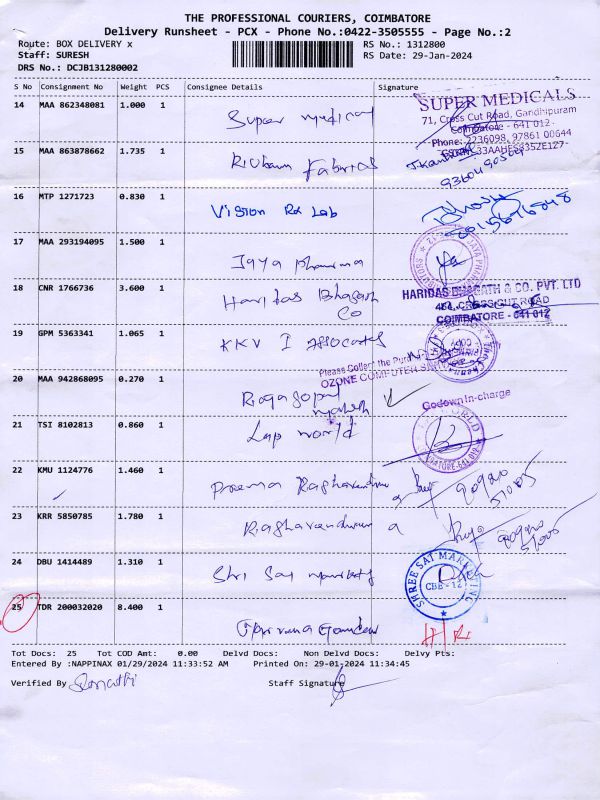 THE PROFESSIONAL COURIERS, COIMBATORE
Delivery Runsheet - PCX - Phone No.:0422-3505555 - Page No.:2
Route: BOX DELIVERY x
RS No.: 1312800
Staff: SURESH
RS Date: 29-Jan-2024
DRS No.: DCJB131280002
S No Consignment No Weight PCS Consignee Details Signature
14 MAA 862348081 1.000 1
Super medical
SUPER MEDICALS
71, Cross Cut Road, Gandhipuram
Coimbatore - 641 012.
Phone: 2236098, 97861 00644
15 MAA 863878662 1.735 1
Fabrics
16 MTP 1271723 0.830 1
Vision Rx Lab
17 MAA 293194095 1.500 1
Jaya pharma
18 CNR 1766736 3.600 1
Haridas Bhagath
Co
HARIDAS BHAGATH & CO. PVT. LTD
CROSS CUT ROAD
COIMBATORE - 641 012
19 GPM 5363341 1.065 1
KKV I Associates
Please Collect the
OZONE COMPUTER
20 MAA 942868095 0.270 1
Rajagopal
21 TSI 8102813 0.860 1
Lap world
Godown In-charge
22 KMU 1124776 1.460 1
Prema Raghavendra
23 KRR 5850785 1.780 1
Raghavendran
24 DBU 1414489 1.310 1
Shri Sai
SHREE SAI MARKETING
CBE - 12
25 TDR 200032020 8.400 1
Tot Docs: 25 Tot COD Amt: 0.00 Delvd Docs: Non Delvd Docs: Delvy Pts:
Entered By :NAPPINAX 01/29/2024 11:33:52 AM Printed On: 29-01-2024 11:34:45
Verified By
Staff Signature